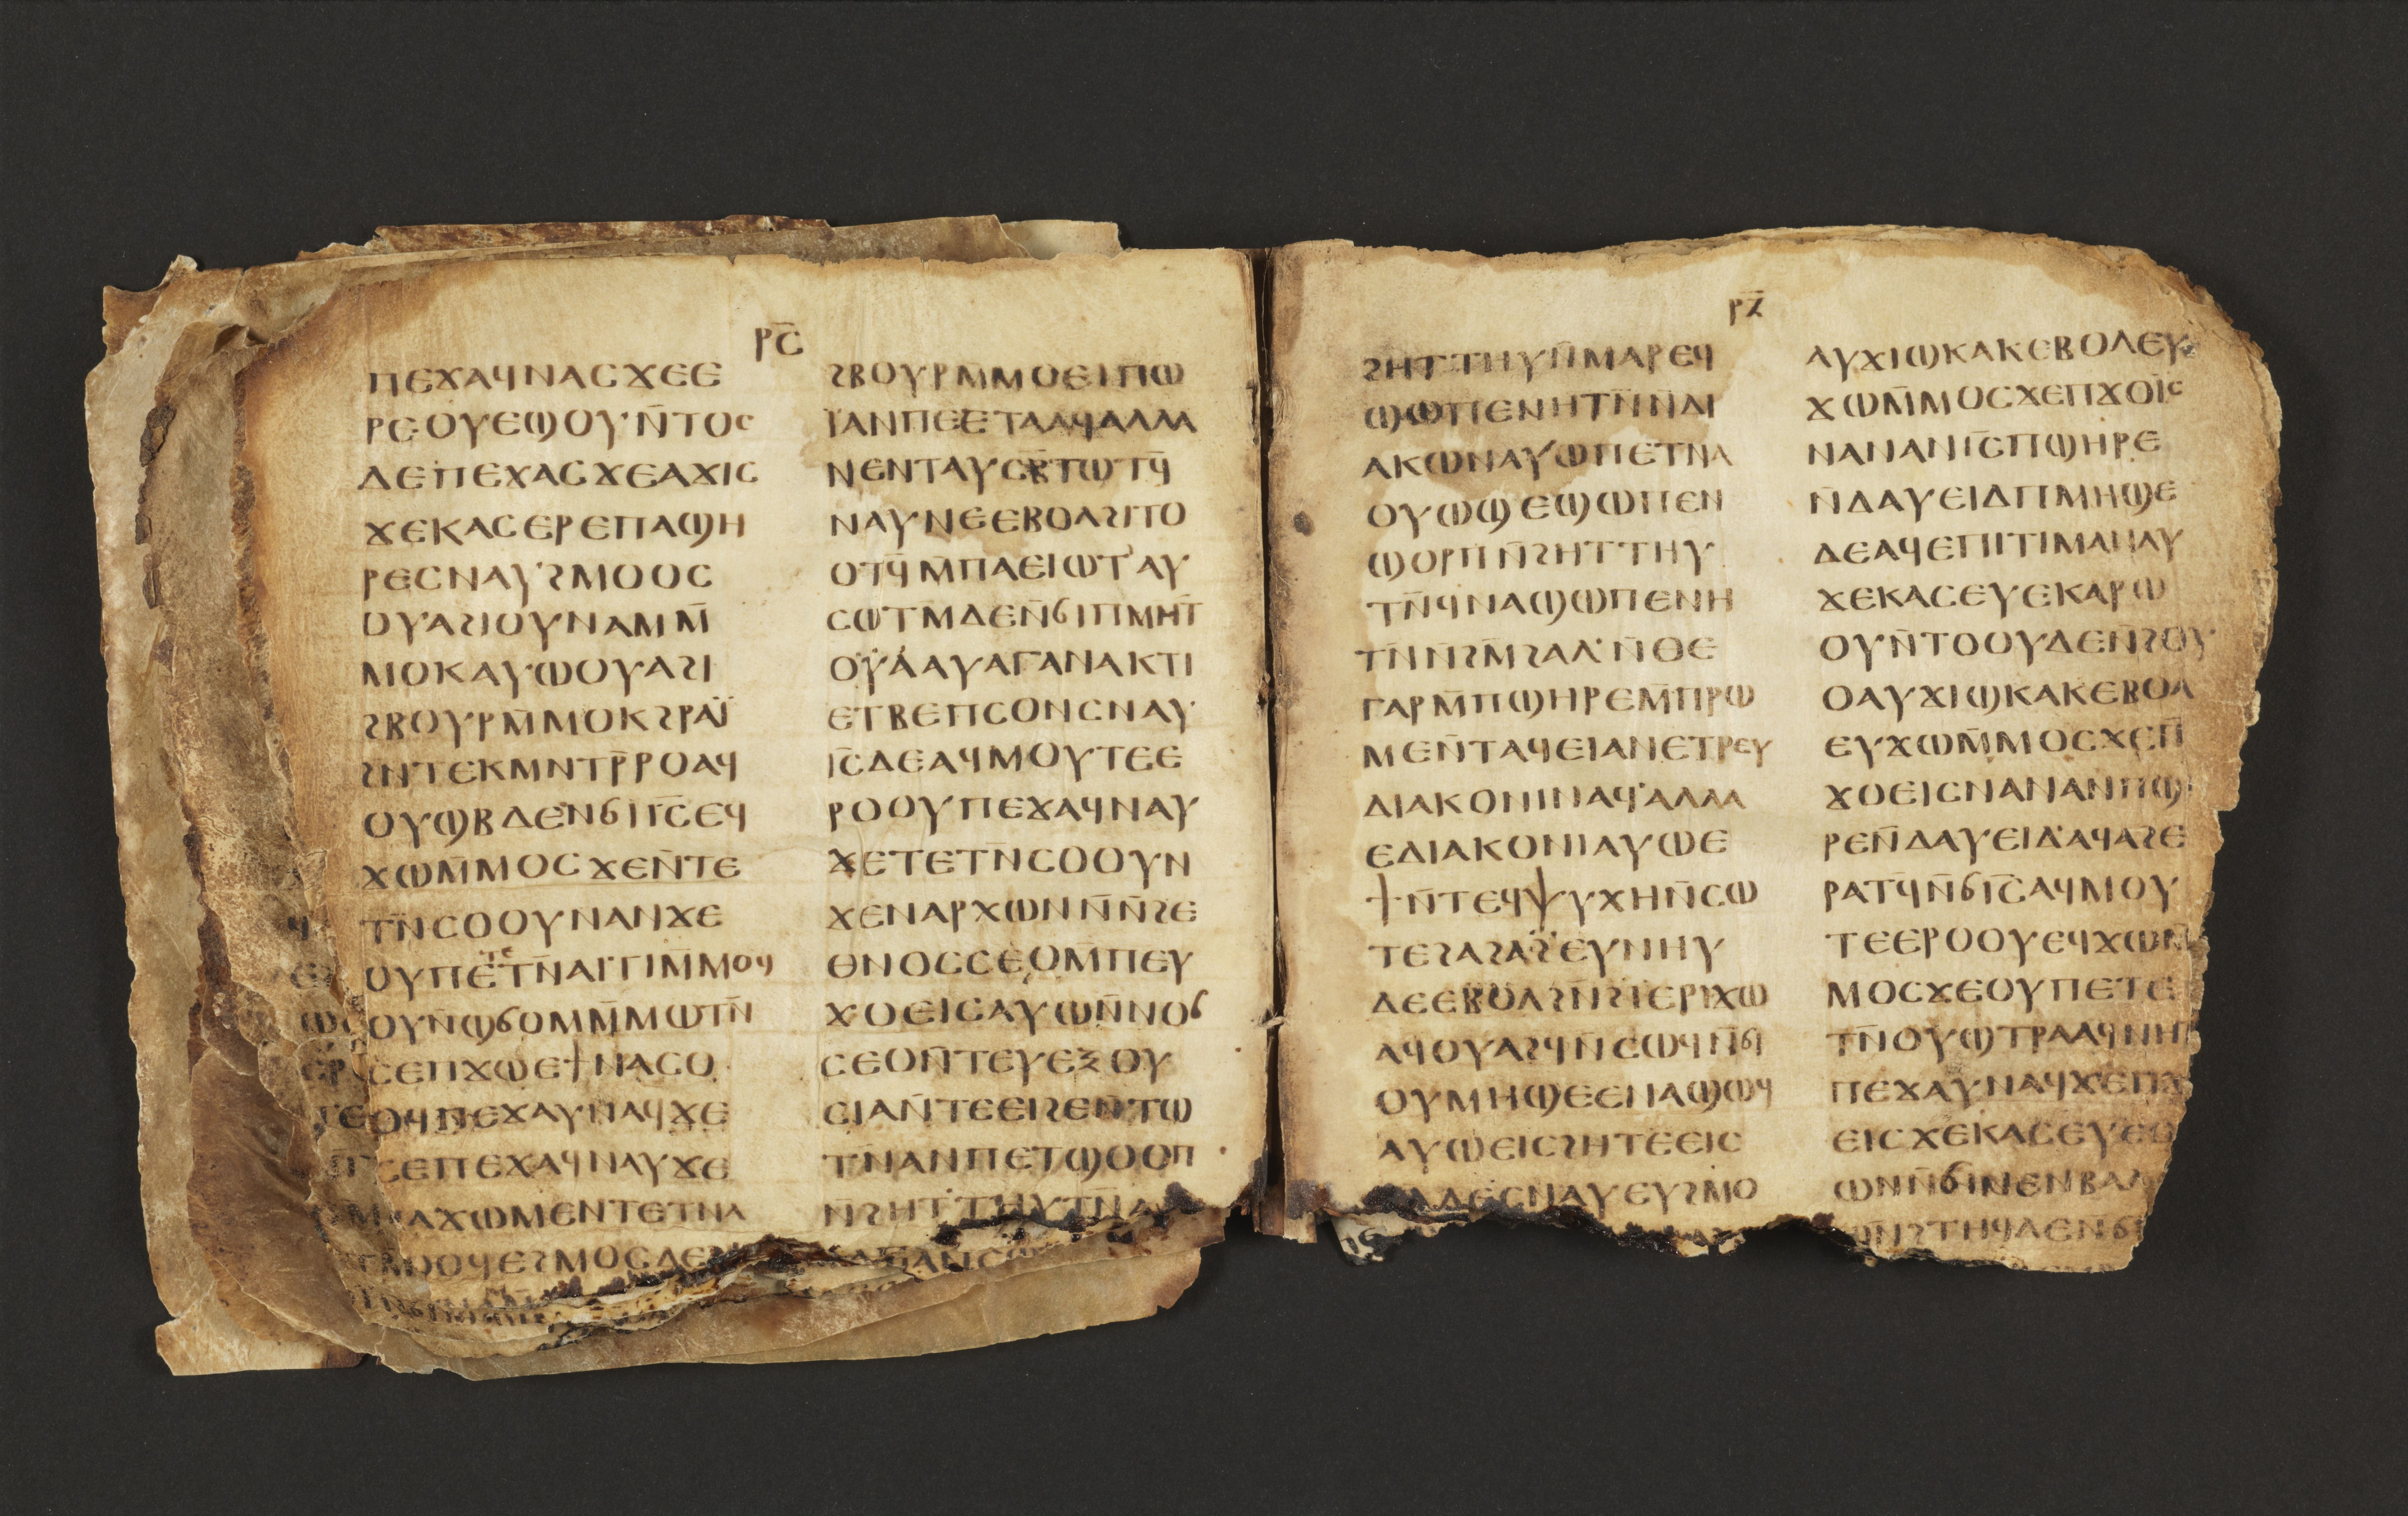 ⲣ̅ⲋ̅
ⲡⲉϫⲁϥⲛⲁⲥϫⲉⲉ
ⲣⲉⲟⲩⲉϣⲟⲩⲛ̅ⲧⲟⲥ
ⲇⲉⲡⲉϫⲁⲥϫⲉⲁϫⲓⲥ
ϫⲉⲕⲁⲥⲉⲣⲉⲡⲁϣⲏ
ⲣⲉⲥⲛⲁⲩϩⲙⲟⲟⲥ
ⲟⲩⲁϩⲓⲟⲩⲛⲁⲙⲙ̅
ⲙⲟⲕⲁⲩⲱⲟⲩⲁϩⲓ
ϩⲃⲟⲩⲣⲙ̅ⲙⲟⲕϩⲣⲁⲓ̈
ϩⲛⲧⲉⲕⲙⲛⲧⲣ̅ⲣⲟⲁϥ
ⲟⲩⲱϣⲃⲇⲉⲛ̅ϭⲓⲓ̅ⲥ̅ⲉϥ
ϫⲱⲙ̅ⲙⲟⲥϫⲉⲛ̅ⲧⲉ
ⲧⲛ̅ⲥⲟⲟⲩⲛⲁⲛϫⲉ
ⲟⲩⲡⲉⲧⲉⲧⲛ̅ⲁⲓⲧⲓⲙ̅ⲙⲟϥ
ⲟⲩⲛ̅ϣϭⲟⲙⲙ̅ⲙⲱⲧⲛ̅
ⲉⲥⲉⲡϫⲱⲉϯⲛⲁⲥⲟ
ⲟϥⲡⲉϫⲁⲩⲛⲁϥϫⲉ
ⲥⲉⲡⲉϫⲁϥⲛⲁⲩϫⲉ
ⲡⲁϫⲱⲙⲉⲛⲧⲉⲧⲛⲁ
ⲥⲟⲟϥⲉϩⲙⲟⲥⲇⲉ
ϩⲃⲟⲩⲣⲙ̅ⲙⲟⲉⲓⲡⲱ
ⲓ̈ⲁⲛⲡⲉⲉⲧⲁⲁϥⲁⲗⲗⲁ
ⲛⲉⲛⲧⲁⲩⲥⲃ̅ⲧⲱⲧϥ̅
ⲛⲁⲩⲛⲉⲉⲃⲟⲗϩⲓⲧⲟ
ⲟⲧϥ̅ⲙ̅ⲡⲁⲉⲓⲱⲧⲁⲩ
ⲥⲱⲧⲙ̅ⲇⲉⲛ̅ϭⲓⲡⲙⲏⲧ
ⲟⲩⲁ̇ⲁⲩⲁⲅⲁⲛⲁⲕⲧⲓ
ⲉⲧⲃⲉⲡⲥⲟⲛⲥⲛⲁⲩ
ⲓ̅ⲥ̅ⲇⲉⲁϥⲙⲟⲩⲧⲉⲉ
ⲣⲟⲟⲩⲡⲉϫⲁϥⲛⲁⲩ
ϫⲉⲧⲉⲧⲛ̅ⲥⲟⲟⲩⲛ
ϫⲉⲛⲁⲣⲭⲱⲛⲛ̅ⲛ̅ϩⲉ
ⲑⲛⲟⲥⲥⲉⲟⲙ̅ⲡⲉⲩ
ϫⲟⲉⲓⲥⲁⲩⲱⲛ̅ⲛⲟϭ
ⲥⲉⲟⲛ̅ⲧⲉⲩⲉⲝⲟⲩ
ⲥⲓⲁⲛ̅ⲧⲉⲉⲓϩⲉⲛ̅ⲧⲱ
ⲧⲛ̅ⲁⲛⲡⲉⲧϣⲟⲟⲡ
ⲛ̅ϩⲏⲧⲧⲏⲩⲧⲛ̅ⲁ
ⲣ̅ⲍ̅
ϩⲏⲧⲧⲏⲩⲛ̅ⲙⲁⲣⲉϥ
ϣⲱⲡⲉⲛⲏⲧⲛ̅ⲛ̅ⲇⲓ
ⲁⲕⲱⲛⲁⲩⲱⲡⲉⲧⲛⲁ
ⲟⲩⲱϣⲉϣⲱⲡⲉⲛ
ϣⲟⲣⲡⲛ̅ϩⲏⲧⲧⲏⲩ
ⲧⲛ̅ϥⲛⲁϣⲱⲡⲉⲛⲏ
ⲧⲛ̅ⲛ̅ϩⲙ̅ϩⲁⲗⲛ̅ⲑⲉ
ⲅⲁⲣⲙ̅ⲡϣⲏⲣⲉⲙ̅ⲡⲣⲱ
ⲙⲉⲛ̅ⲧⲁϥⲉⲓⲁⲛⲉⲧⲣⲉⲩ
ⲇⲓⲁⲕⲟⲛⲓⲛⲁϥⲁⲗⲗⲁ
ⲉⲇⲓⲁⲕⲟⲛⲓⲁⲩⲱⲉ
ϯⲛ̅ⲧⲉϥⲯⲩⲭⲏⲛ̅ⲥⲱ
ⲧⲉϩⲁϩⲁϩⲉⲩⲛⲏⲩ
ⲇⲉⲉⲃⲟⲗϩⲛ̅ϩⲓⲉⲣⲓⲭⲱ
ⲁϥⲟⲩⲁϩϥⲛ̅ⲥⲱϥⲛ̅ϭⲓ
ⲟⲩⲙⲏϣⲉⲉⲛⲁϣⲱϥ
ⲁⲩⲱⲉⲓⲥϩⲏⲧⲉⲉⲓⲥ
ⲇⲉⲥⲛⲁⲩⲉⲩϩⲙⲟ
ⲁⲩϫⲓϣⲕⲁⲕⲉⲃⲟⲗⲉⲩ
ϫⲱⲙ̅ⲙⲟⲥϫⲉⲡϫⲟⲓ̈ⲥ
ⲛⲁⲛⲁⲛⲓ̅ⲥ̅ⲡϣⲏⲣⲉ
ⲛ̅ⲇⲁⲩⲉⲓⲇⲡⲙⲏϣⲉ
ⲇⲉⲁϥⲉⲡⲓⲧⲓⲙⲁⲛⲁⲩ
ϫⲉⲕⲁⲥⲉⲩⲉⲕⲁⲣⲱ
ⲟⲩⲛ̅ⲧⲟⲟⲩⲇⲉⲛ̅ϩⲟⲩ
ⲟⲁⲩϫⲓϣⲕⲁⲕⲉⲃⲟⲗ
ⲉⲩϫⲱⲙ̅ⲙⲟⲥϫⲉⲡ
ϫⲟⲉⲓⲥⲛⲁⲛⲁⲛⲡϣ
ⲣⲉⲛ̅ⲇⲁⲩⲉⲓⲇⲁϥⲁϩⲉ
ⲣⲁⲧϥ̅ⲛ̅ϭⲓ̅ⲥ̅ⲁϥⲙⲟⲩ
ⲧⲉⲉⲣⲟⲟⲩⲉϥϫⲱⲙ̅
ⲙⲟⲥϫⲉⲟⲩⲡⲉⲧⲉ
ⲧⲛ̅ⲟⲩⲱϣⲧⲣⲁⲁϥⲛⲏ
ⲡⲉϫⲁⲩⲛⲁϥϫⲉⲡϫ
ⲉⲓⲥϫⲉⲕⲁⲥⲉⲩⲉ
ⲱⲛⲛ̅ϭⲓⲛⲉⲛⲃⲁⲗ
ϣⲛ̅ϩⲧⲏϥⲇⲉⲛ̅ϭⲓ